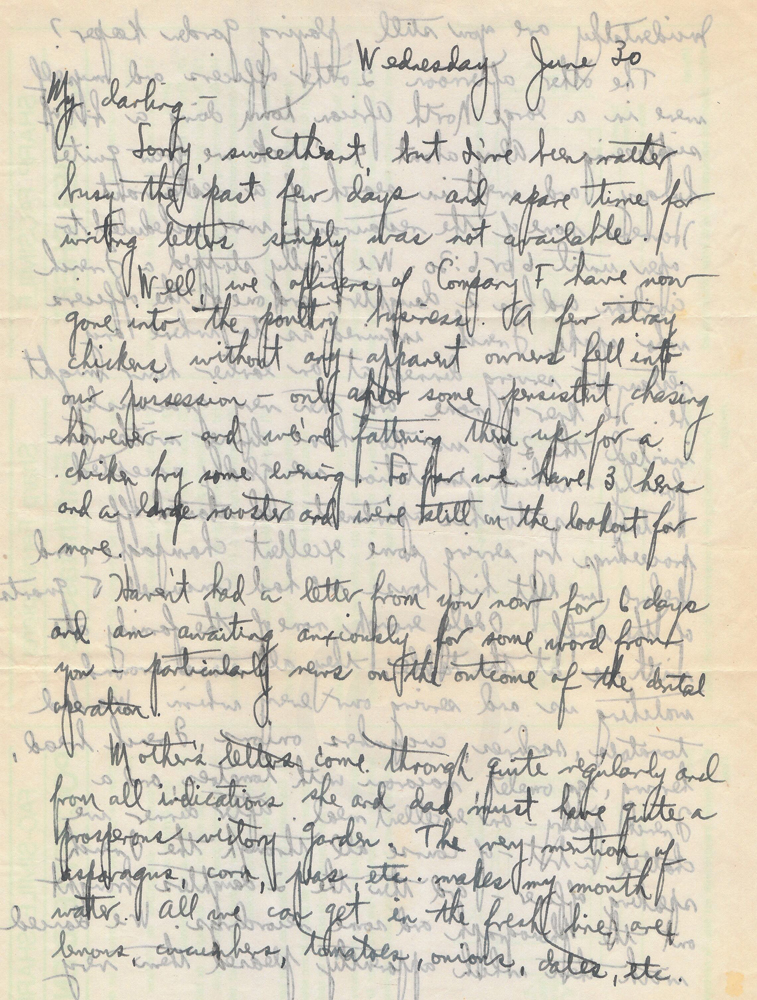 Wednesday June 30
My darling -
Sorry, sweetheart, but I've been rather
busy the past few days and spare time for
writing letters simply was not available.
Well, we officers of Company F have now
gone into the poultry business. A few stray
chickens without any apparent owners fell into
our possession - only after some persistent chasing
however - and we're fattening them up for a
chicken fry some evening. So far we have 3 hens
and a large rooster and we're still on the lookout for
more.
Haven't had a letter from you now for 6 days
and am awaiting anxiously for some word from
you - particularly news on the outcome of the dental
operation.
Mother's letters come through quite regularly and
from all indications she and dad must have quite a
prosperous victory garden. The very mention of
asparagus, corn, peas, etc. makes my mouth
water. All we can get in the fresh line, are
lemons, cucumbers, tomatoes, onions, dates, etc.